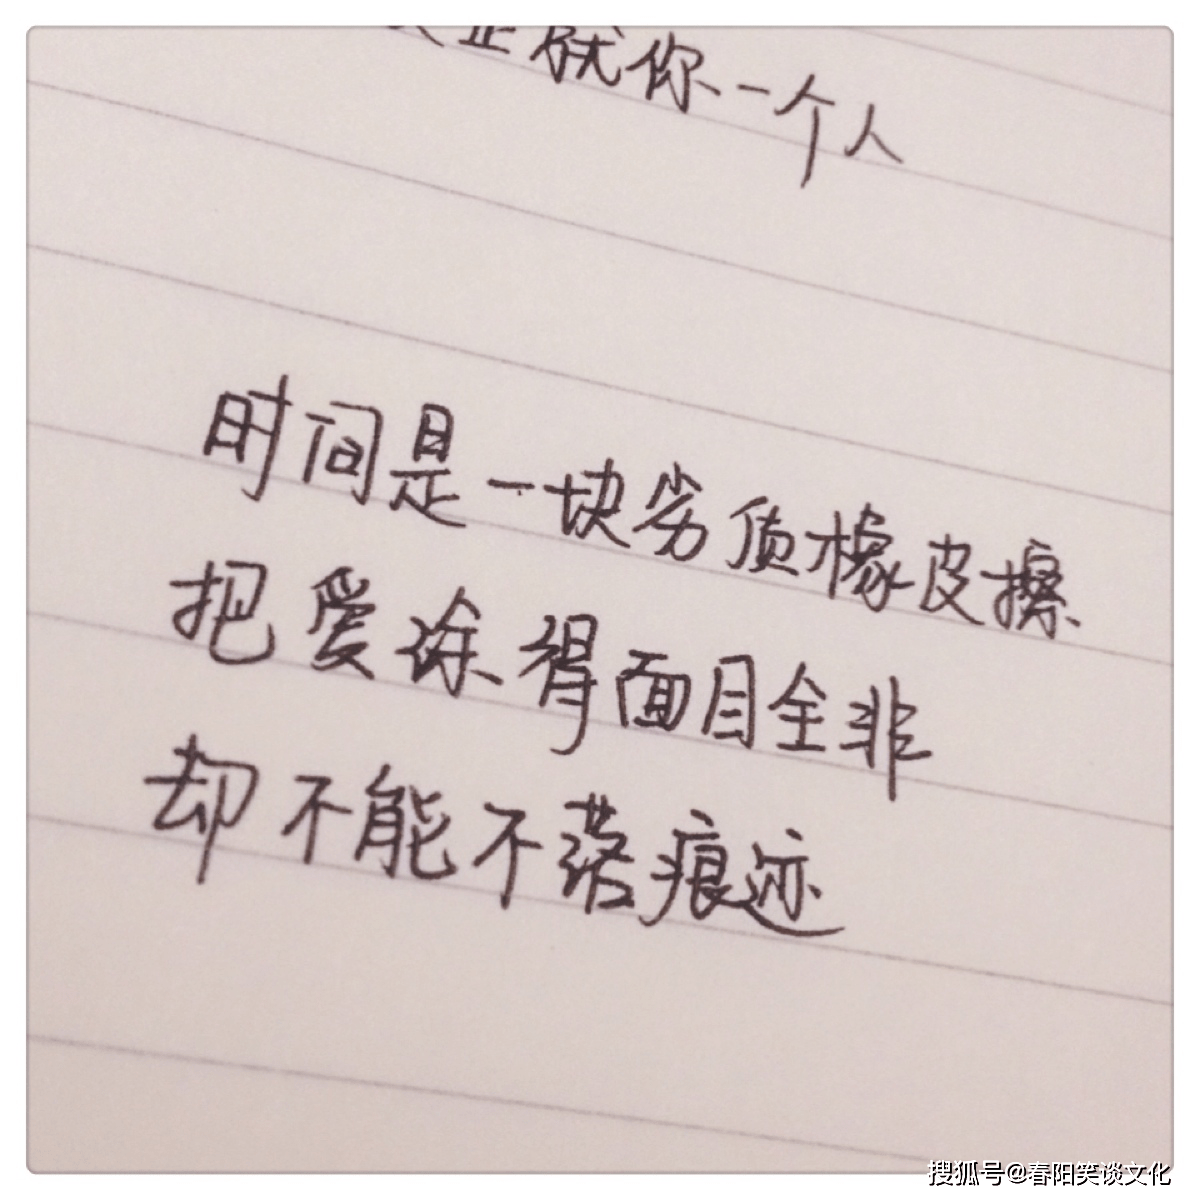 就你一个人
时间是一块劣质橡皮擦
把爱涂得面目全非
却不能不落痕迹
搜狐号@春阳笑谈文化